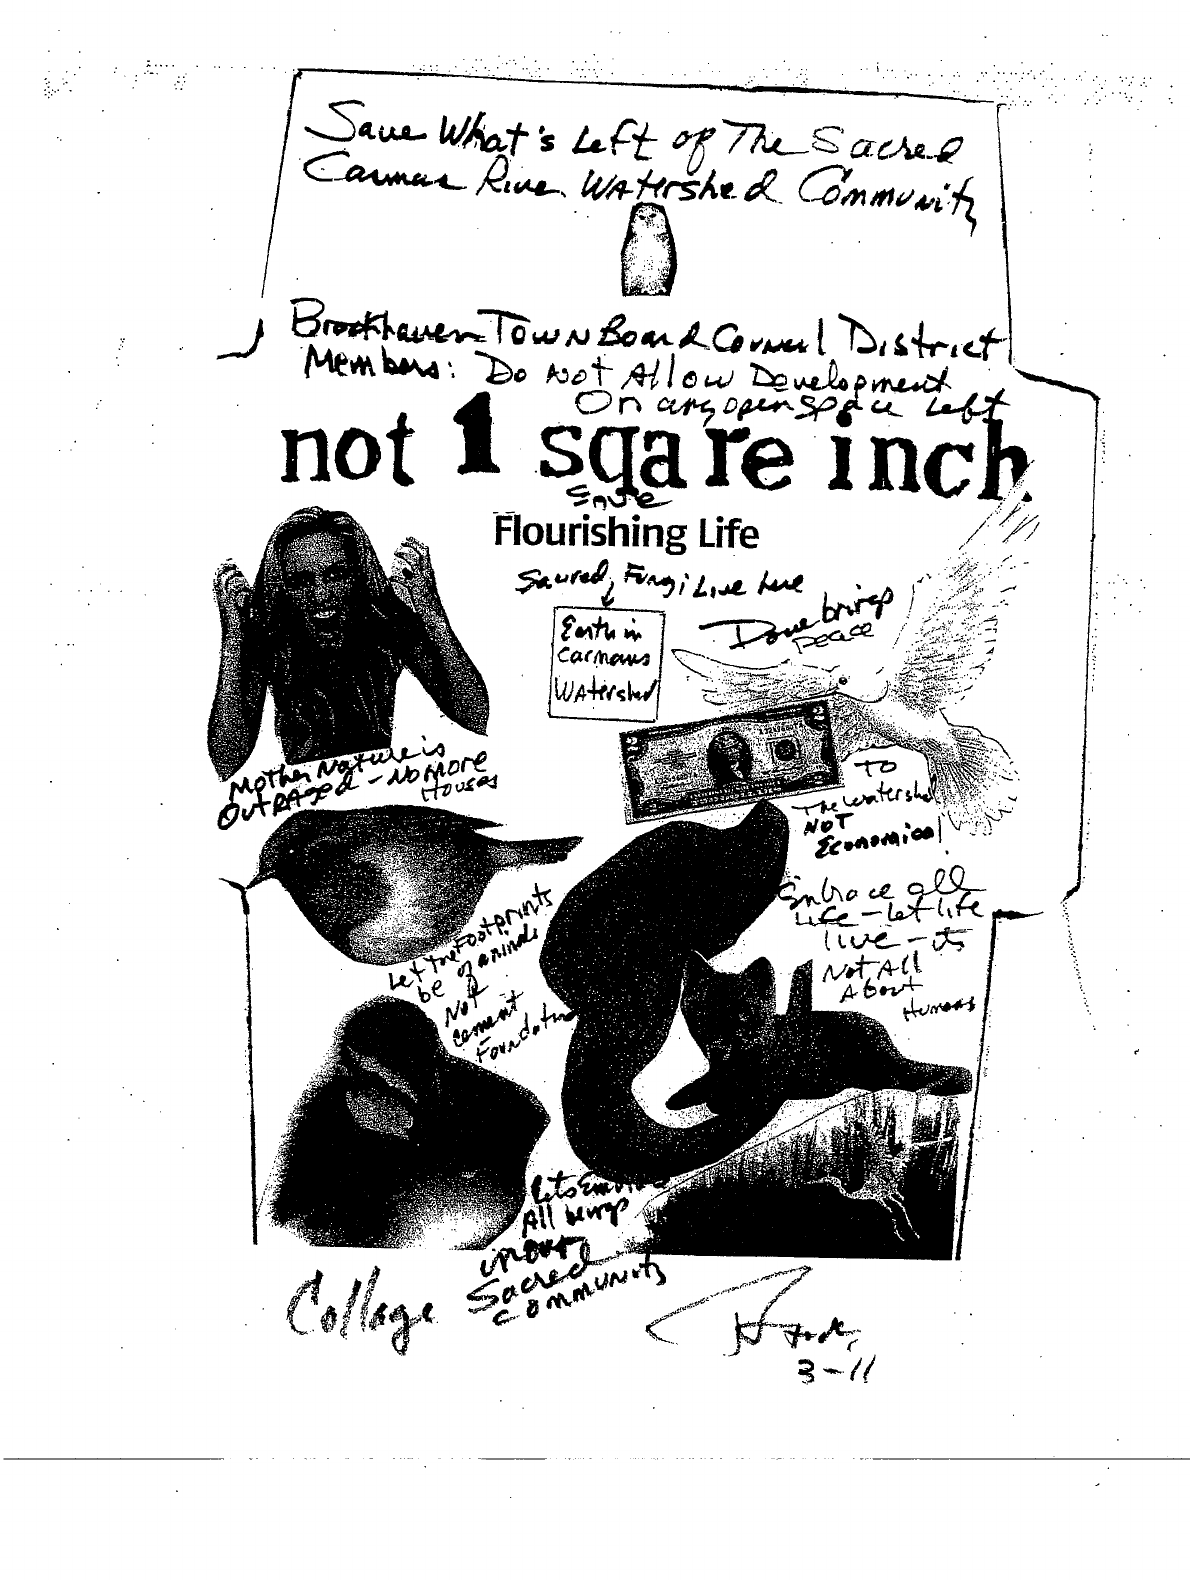 Save What's Left of The Sacred
Carmans River Watershed Community
Brookhaven Town Board Council District
Members: Do Not Allow Development
On any open space Left
not 1 sqare inch
Save
Flourishing Life
Sacred, Fungi Live here
Earth in
Carmans
Watershed
Dove brings
Peace
Mother Nature is
OutRAged - No More
Houses
TO
The watershed
NOT
Economical
Embrace all
Life - Let life
live - its
Not All
About
Humans
Let the Footprints
of animals
be
Not
cement
Foundation
Lets
All beings
in our
Sacred
Community
Collage
3-11